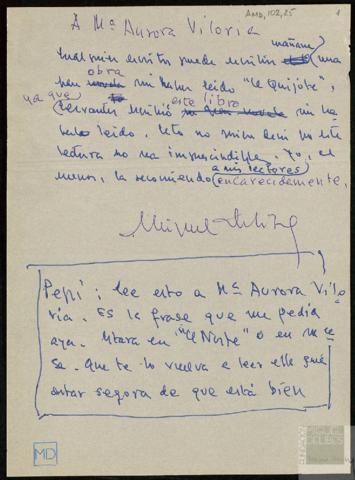 AMD, 102, 25
1
A Mª Aurora Viloria
mañana
Cualquier escritor puede escribir una
obra
gran sin haber leído "El Quijote",
ya que este libro
Cervantes escribió sin ha
berlo leído. Esto no quiere decir que esta
lectura no sea imprescindible. Yo, al
a mis lectores
menos, la recomiendo encarecidamente.
Miguel Delibes
Pepi: lee esto a Mª Aurora Vilo
ria. Es la frase que me pedía
ayer. Estará en "El Norte" o en su ca
sa. Que te lo vuelva a leer ella para
estar segura de que está bien
MD
FUNDACIÓN
MIGUEL
DELIBES